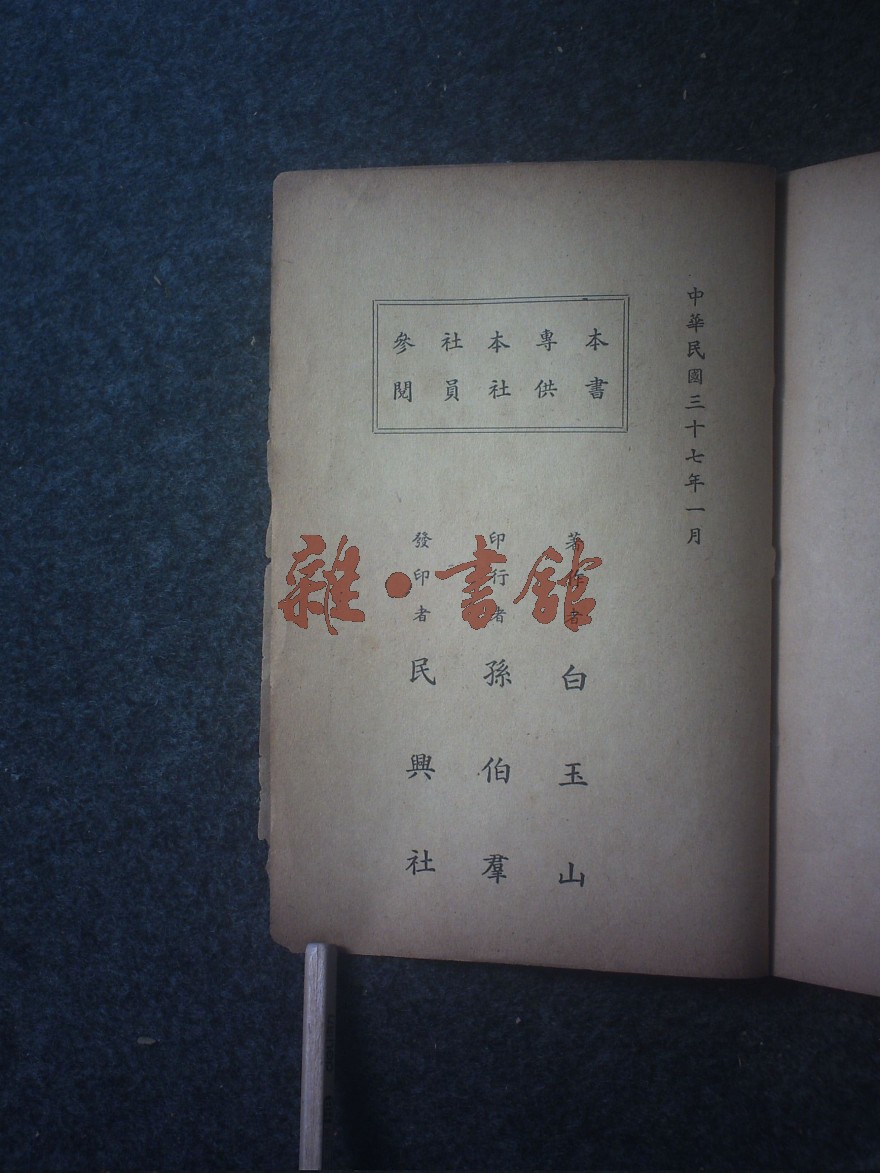 中華民國三十七年一月
本書
專供
本社
社員
參閱
著作者 白玉山
印行者 孫伯羣
發印者 民興社
雜·書館